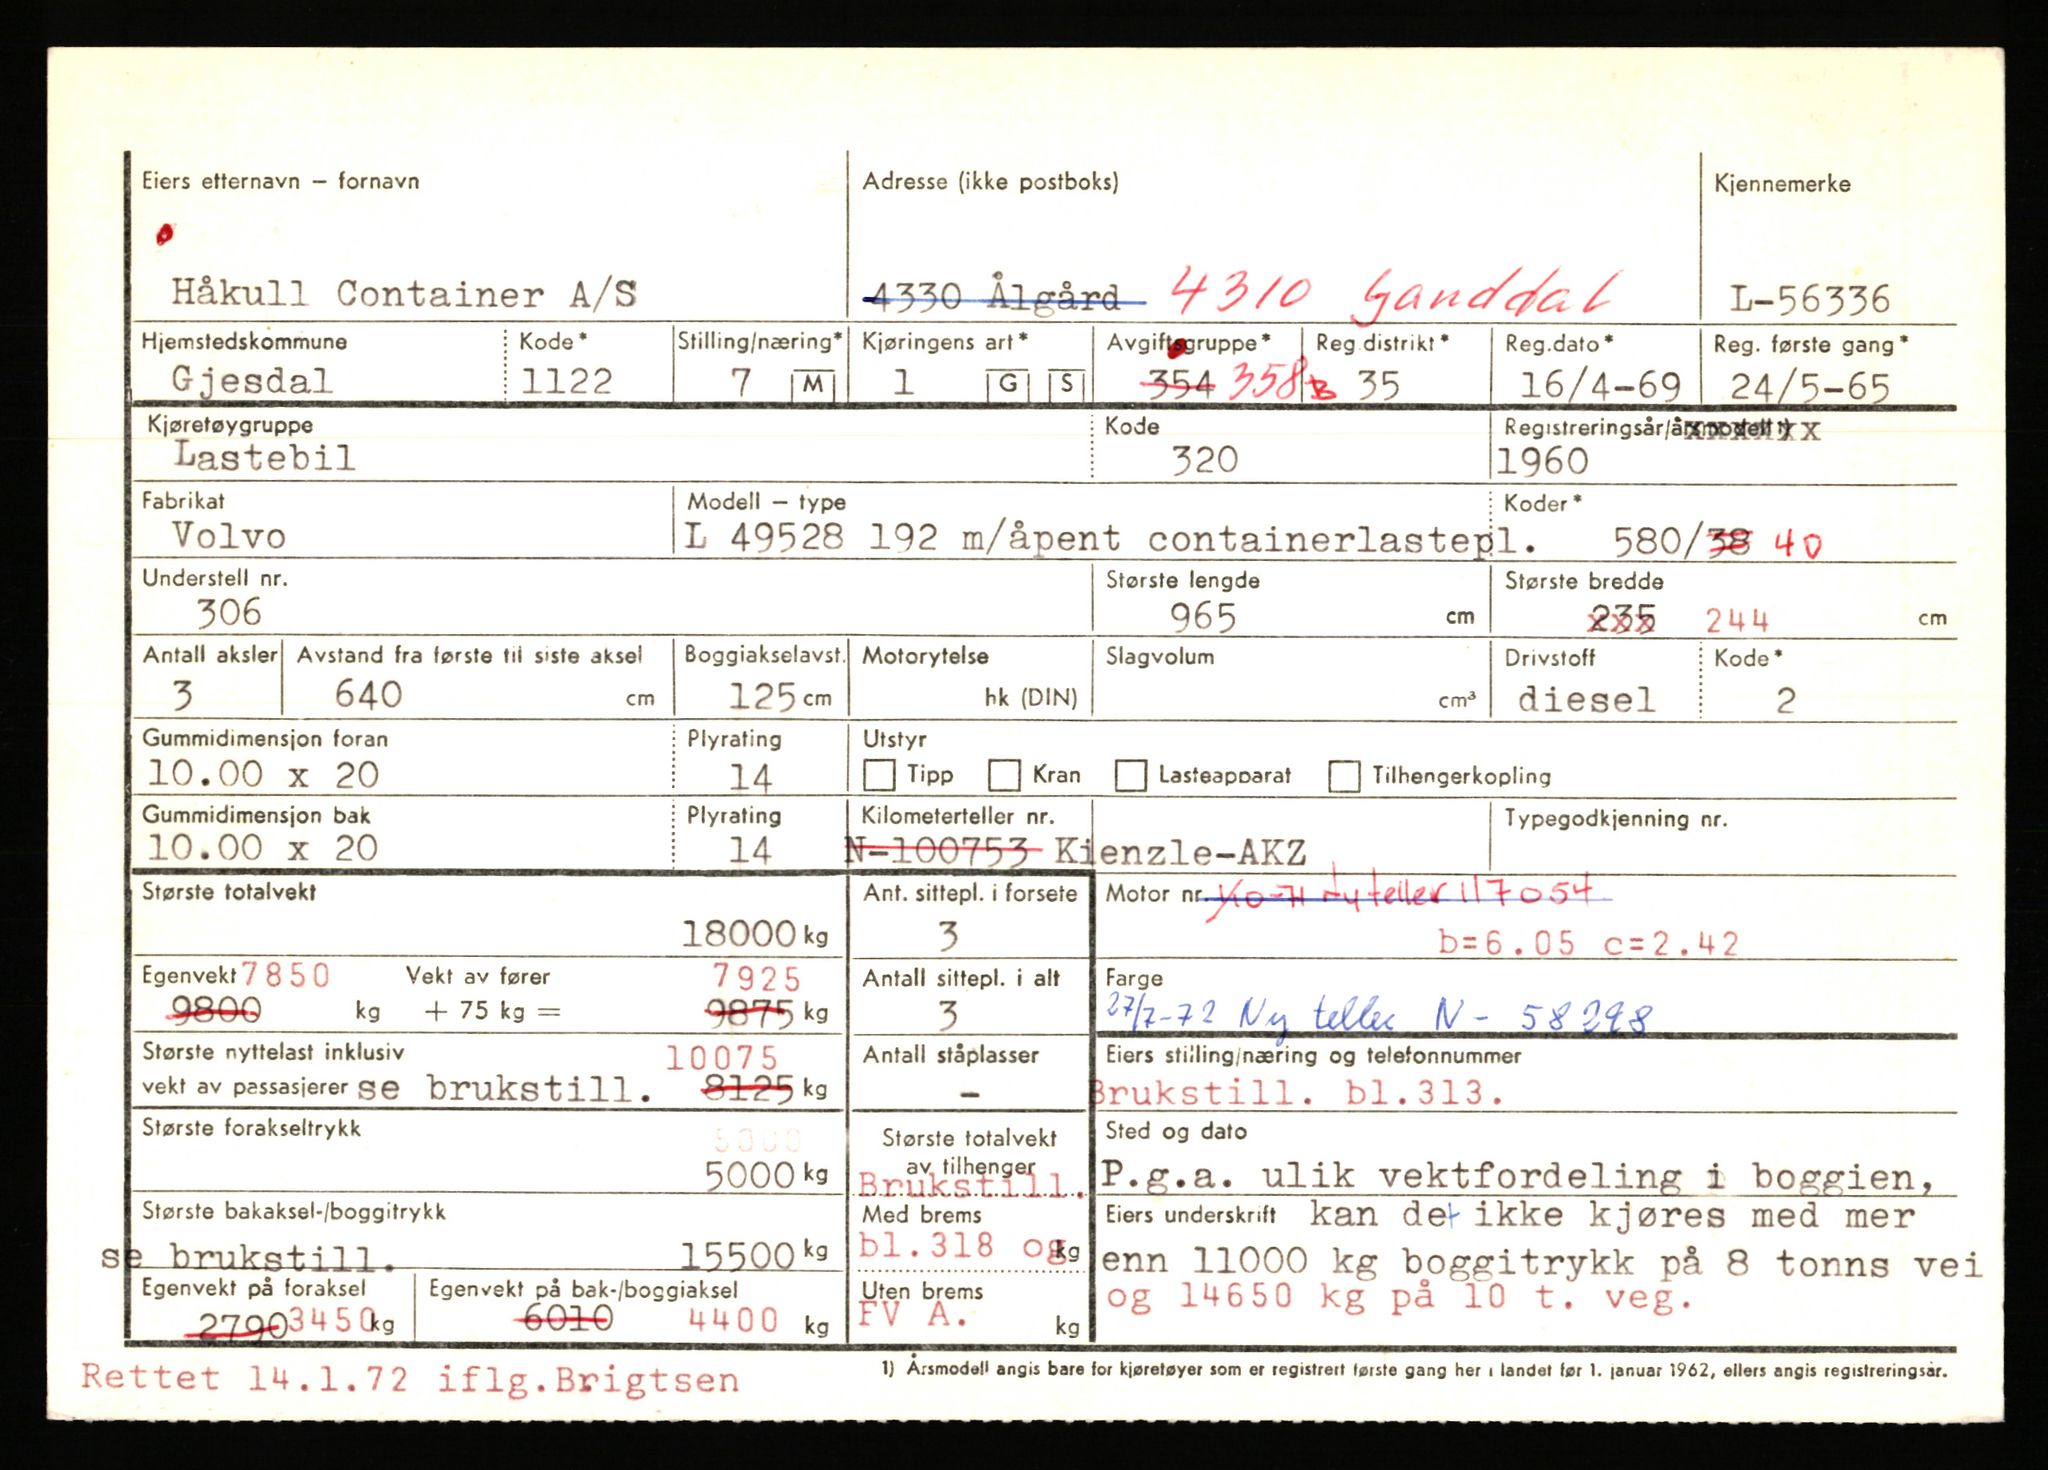 Eiers etternavn – fornavn Adresse (ikke postboks) Kjennemerke
Håkull Container A/S 4330 Ålgård 4310 Ganddal L-56336
Hjemstedskommune Kode* Stilling/næring* Kjøringens art* Avgiftsgruppe* Reg.distrikt* Reg.dato* Reg. første gang*
Gjesdal 1122 7 M 1 G S 354 358 B 35 16/4-69 24/5-65
Kjøretøygruppe Kode Registreringsår/årsmodell 1)
Lastebil 320 1960
Fabrikat Modell – type Koder*
Volvo L 49528 192 m/åpent containerlastepl. 580/38 40
Understell nr. Største lengde Største bredde
306 965 cm 235 244 cm
Antall aksler Avstand fra første til siste aksel Boggiakselavst. Motorytelse Slagvolum Drivstoff Kode*
3 640 cm 125 cm hk (DIN) cm³ diesel 2
Gummidimensjon foran Plyrating Utstyr
10.00 x 20 14 Tipp Kran Lasteapparat Tilhengerkopling
Gummidimensjon bak Plyrating Kilometerteller nr. Typegodkjenning nr.
10.00 x 20 14 N-100753 Kienzle-AKZ
Største totalvekt Ant. sittepl. i forsete Motor nr. teller 117054
18000 kg 3 b=6.05 c=2.42
Egenvekt 7850 Vekt av fører 7925 Antall sittepl. i alt Farge
9800 kg + 75 kg = 9875 kg 3 27/7-72 Ny teller N - 58298
Største nyttelast inklusiv 10075 Antall ståplasser Eiers stilling/næring og telefonnummer
vekt av passasjerer se brukstill. 8125 kg – Brukstill. bl.313.
Største forakseltrykk 5000 Største totalvekt Sted og dato
5000 kg av tilhenger Brukstill. P.g.a. ulik vektfordeling i boggien,
Største bakaksel-/boggitrykk Med brems Eiers underskrift kan det ikke kjøres med mer
se brukstill. 15500 kg bl.318 og kg enn 11000 kg boggitrykk på 8 tonns vei
Egenvekt på foraksel Egenvekt på bak-/boggiaksel Uten brems og 14650 kg på 10 t. veg.
2790 3450 kg 6010 4400 kg FV A. kg
Rettet 14.1.72 iflg.Brigtsen 1) Årsmodell angis bare for kjøretøyer som er registrert første gang her i landet før 1. januar 1962, ellers angis registreringsår.